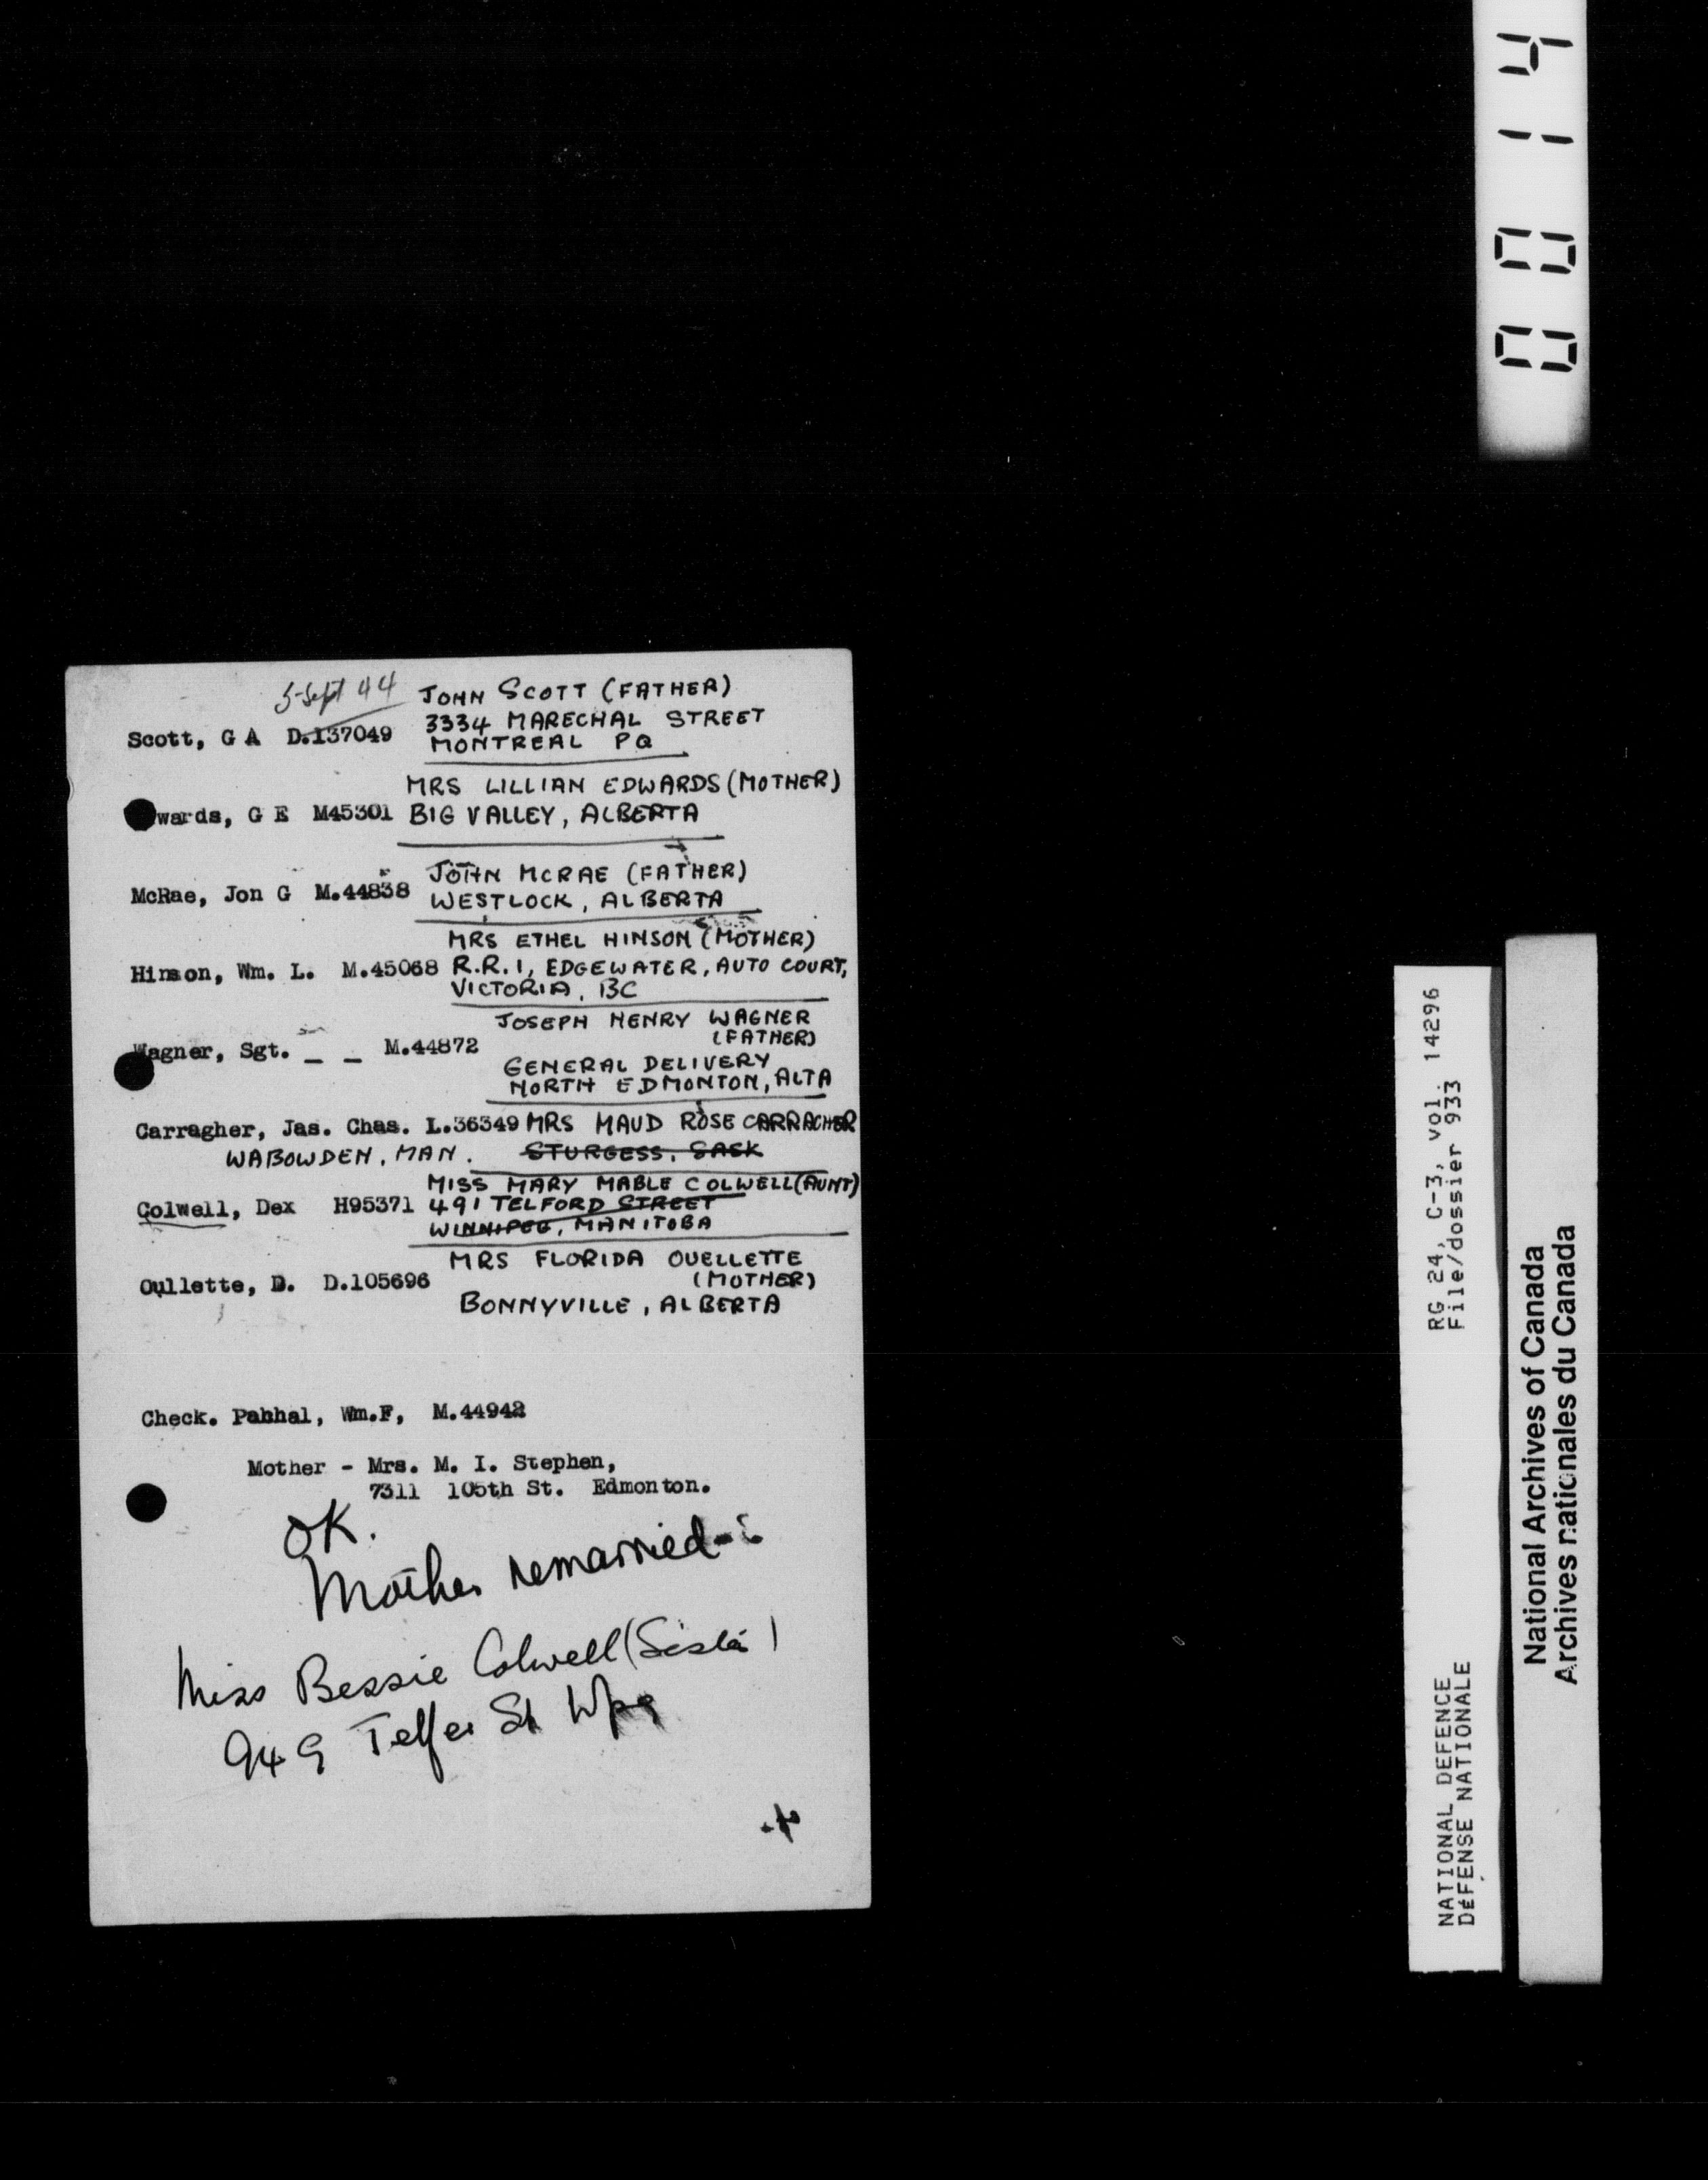 0014
5 Sept 44
JOHN SCOTT (FATHER)
Scott, G A D.137049 3334 MARECHAL STREET
MONTREAL PQ
MRS LILLIAN EDWARDS (MOTHER)
wards, G E M45301 BIG VALLEY, ALBERTA
JOHN MCRAE (FATHER)
McRae, Jon G M.44838 WESTLOCK, ALBERTA
MRS ETHEL HINSON (MOTHER)
Hinson, Wm. L. M.45068 R.R.1, EDGEWATER, AUTO COURT,
VICTORIA, BC
JOSEPH HENRY WAGNER
(FATHER)
Wagner, Sgt. _ _ M.44872
GENERAL DELIVERY
NORTH EDMONTON, ALTA
Carragher, Jas. Chas. L.36349 MRS MAUD ROSE CARRAGHER
WABOWDEN, MAN. STURGESS, SASK
MISS MARY MABLE COLWELL (AUNT)
Colwell, Dex H95371 491 TELFORD STREET
WINNIPEG, MANITOBA
MRS FLORIDA OUELLETTE
Oullette, D. D.105696 (MOTHER)
BONNYVILLE, ALBERTA
Check. Pahhal, Wm.F, M.44942
Mother - Mrs. M. I. Stephen,
7311 105th St. Edmonton.
OK.
Mother remarried
Miss Bessie Colwell (Sister)
949 Telfer St Wpg
RG 24, C-3, vol. 14296
File/dossier 933
NATIONAL DEFENCE
DÉFENSE NATIONALE
National Archives of Canada
Archives nationales du Canada